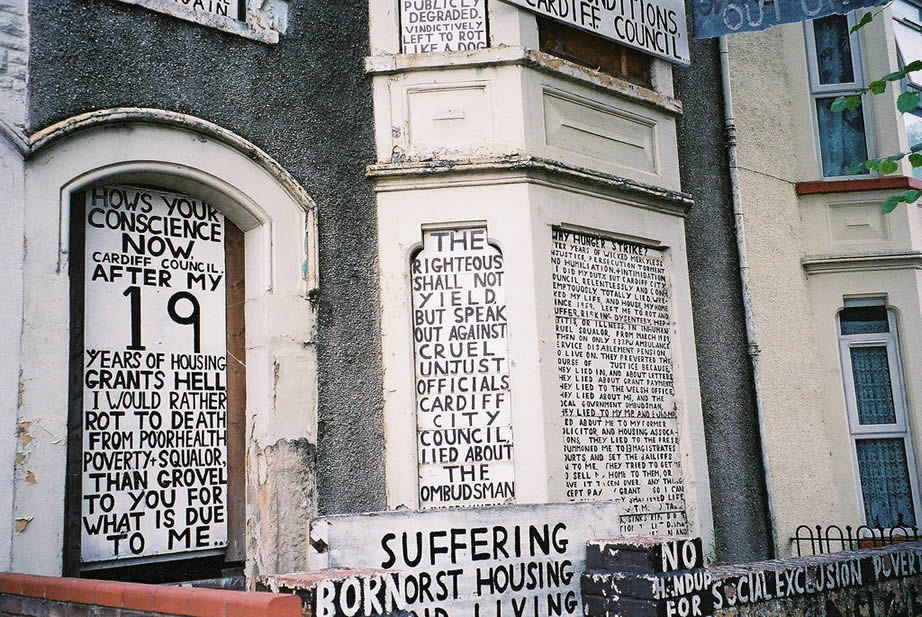 AIN
PUBLICLY
DEGRADED.
VINDICTIVELY
LEFT TO ROT
LIKE A DOG
CONDITIONS,
CARDIFF COUNCIL
OUT
HOWS YOUR
CONSCIENCE
NOW
CARDIFF COUNCIL.
AFTER MY
19
YEARS OF HOUSING
GRANTS HELL
I WOULD RATHER
ROT TO DEATH
FROM POORHEALTH
POVERTY+SQUALOR,
THAN GROVEL
TO YOU FOR
WHAT IS DUE
TO ME..
THE
RIGHTEOUS
SHALL NOT
YIELD,
BUT SPEAK
OUT AGAINST
CRUEL
UNJUST
OFFICIALS
CARDIFF
CITY
COUNCIL,
LIED ABOUT
THE
OMBUDSMAN
WHY HUNGER STRIKE?
TER YEARS OF WICKED MERCYLESS
NJUSTICE, PERSECUTION TORMENT
ND HUMILIATION, +INTIMIDATION
I DID MY DUTY BUT CARDIFF CITY
OUNCIL, RELENTLESSLY AND CONT
EMPTUOUSLY, TOTALLY LIED, WRE
KED MY LIFE, AND HOUSE, MY HOME
SINCE 1959, LEFT ME TO ROT AND
UFFER, RISKING DYSENTERY, HEP
TITIS, OR ILLNESS, IN INHUMAN
RUEL SQUALOR, FROM MARCH 1989,
THEN ON ONLY £37PW AMBULANCE
ERVICE DISABLEMENT PENSION
O LIVE ON. THEY PREVERTED THE
OURSE OF JUSTICE BECAUSE,
HEY LIED IN, AND ABOUT LETTERS,
HEY LIED ABOUT GRANT PAYMENTS
HEY LIED TO THE WELSH OFFICE,
HEY LIED ABOUT ME, AND THE
OCAL GOVERNMENT OMBUDSMAN,
HEY LIED TO MY MP AND
ED ABOUT ME TO MY FORMER
OLICITOR AND HOUSING ASSOCA
IONS, THEY LIED TO THE PRESS
UMMONED ME TO 13 MAGISTRATES
OURTS, AND SET THE BAILIFFS
N TO ME, THEY TRIED TO GET ME
O SELL MY HOME TO THEM, OR
VE IT OVER, ANY THING
CEPT PAY GRANT SO I CAN
LIFE
SUFFERING
BORN ORST HOUSING
ND LIVING
NO
HANDUP
FOR SOCIAL EXCLUSION POVERT